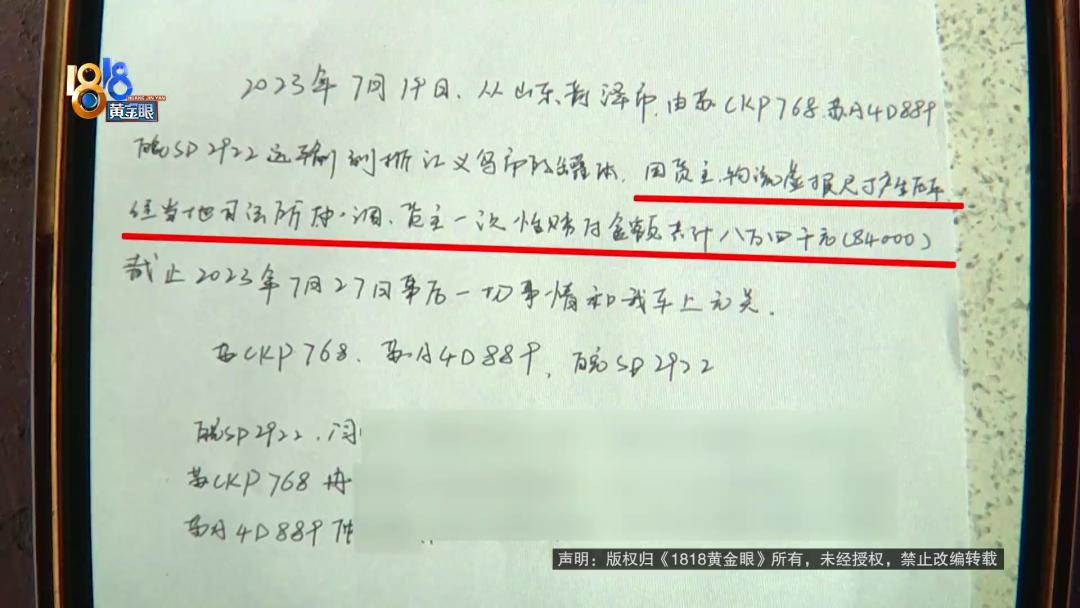 1818
HUANG JIN YAN
黄金眼
2023年7月19日、从山东菏泽市,由苏CKP768.苏A4D889
皖SD2922运输到浙江义乌市的罐体,因货主、物流虚报尺寸产生压车、
经当地司法所仲调、货主一次性赔付金额共计八万四千元(84000)
截止2023年7月27日事后一切事情和我车上无关.
苏CKP768.苏A4D889,皖SD2922
皖SD2922.闫
苏CKP768 冉
苏A4D889
声明:版权归《1818黄金眼》所有,未经授权,禁止改编转载